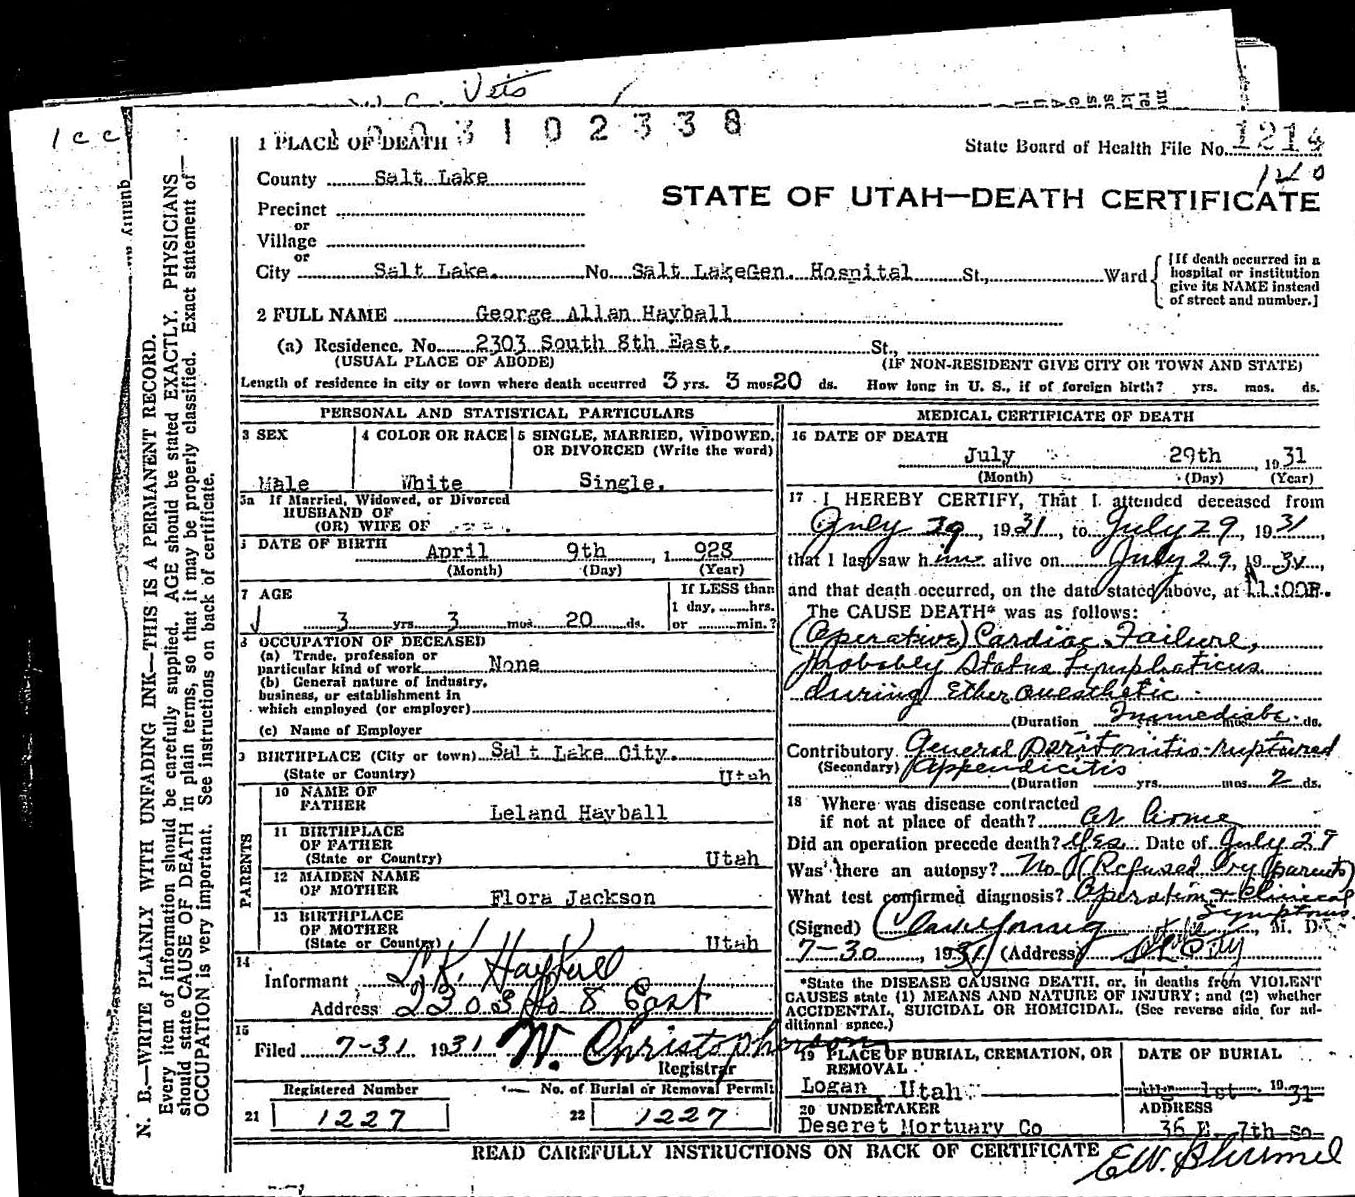 Vets
1 c c
3 1 0 2 3 3 8
1 PLACE OF DEATH
State Board of Health File No. 1214
County Salt Lake
STATE OF UTAH—DEATH CERTIFICATE
Precinct
or
Village
or
City Salt Lake. No. Salt LakeGen. Hospital St., Ward
[If death occurred in a
hospital or institution
give its NAME instead
of street and number.]
2 FULL NAME George Allan Hayball
(a) Residence. No. 2303 South 8th East. St.,
(USUAL PLACE OF ABODE) (IF NON-RESIDENT GIVE CITY OR TOWN AND STATE)
Length of residence in city or town where death occurred 3 yrs. 3 mos 20 ds. How long in U. S., if of foreign birth? yrs. mos. ds.
N. B.—WRITE PLAINLY WITH UNFADING INK—THIS IS A PERMANENT RECORD.
Every item of information should be carefully supplied. AGE should be stated EXACTLY. PHYSICIANS
should state CAUSE OF DEATH in plain terms, so that it may be properly classified. Exact statement of
OCCUPATION is very important. See instructions on back of certificate.
PERSONAL AND STATISTICAL PARTICULARS
3 SEX
Male
4 COLOR OR RACE
White
5 SINGLE, MARRIED, WIDOWED,
OR DIVORCED (Write the word)
Single.
5a If Married, Widowed, or Divorced
HUSBAND OF
(OR) WIFE OF
DATE OF BIRTH
April 9th, 1 928
(Month) (Day) (Year)
7 AGE
3 yrs 3 mos 20 ds.
If LESS than
1 day, hrs.
or min.?
8 OCCUPATION OF DECEASED
(a) Trade, profession or
particular kind of work None
(b) General nature of industry,
business, or establishment in
which employed (or employer)
(c) Name of Employer
9 BIRTHPLACE (City or town) Salt Lake City.
(State or Country) Utah
PARENTS
10 NAME OF
FATHER
Leland Hayball
11 BIRTHPLACE
OF FATHER
(State or Country) Utah
12 MAIDEN NAME
OF MOTHER
Flora Jackson
13 BIRTHPLACE
OF MOTHER
(State or Country) Utah
14
Informant L K Hayball
Address 2303 So 8 East
15
Filed 7-31 1931 W. Christopherson
Registrar
Registered Number
21 1227
No. of Burial or Removal Permit
22 1227
MEDICAL CERTIFICATE OF DEATH
16 DATE OF DEATH
July 29th, 1931
(Month) (Day) (Year)
17 I HEREBY CERTIFY, That I attended deceased from
July 29, 1931, to July 29, 1931,
that I last saw him alive on July 29, 1931,
and that death occurred, on the date stated above, at 11:00P.
The CAUSE DEATH* was as follows:
(Operative) Cardiac Failure,
probably Status Lymphaticus
during Ether anesthetic
(Duration Immediate mos. ds.
Contributory General Peritonitis-ruptured
(Secondary) appendicitis
(Duration yrs. mos. 2 ds.
18 Where was disease contracted
if not at place of death? At home
Did an operation precede death? Yes Date of July 27
Was there an autopsy? No (Refused by parents)
What test confirmed diagnosis? Operation & Clinical
Symptoms.
(Signed) M. D.
7-30, 1931 (Address) SL City
*State the DISEASE CAUSING DEATH, or, in deaths from VIOLENT
CAUSES state (1) MEANS AND NATURE OF INJURY; and (2) whether
ACCIDENTAL, SUICIDAL OR HOMICIDAL. (See reverse side for ad-
ditional space.)
19 PLACE OF BURIAL, CREMATION, OR
REMOVAL
Logan, Utah
DATE OF BURIAL
Aug. 1st 1931
20 UNDERTAKER
Deseret Mortuary Co
ADDRESS
36 E. 7th So
READ CAREFULLY INSTRUCTIONS ON BACK OF CERTIFICATE